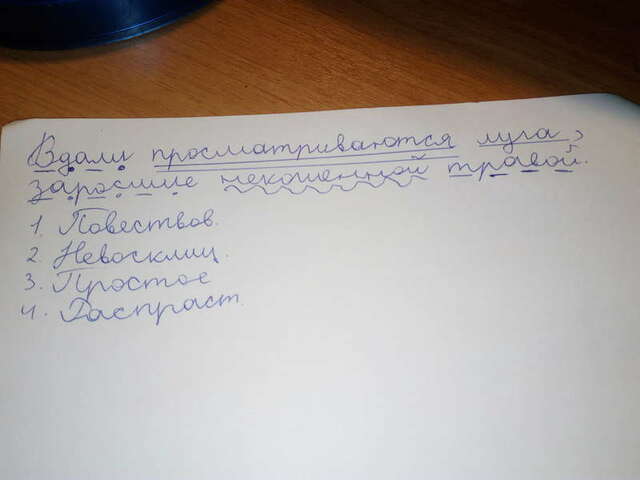 Вдали просматриваются луга,
заросшие некошенной травой.
1. Повествов.
2. Невосклиц.
3. Простое
4. Распраст.